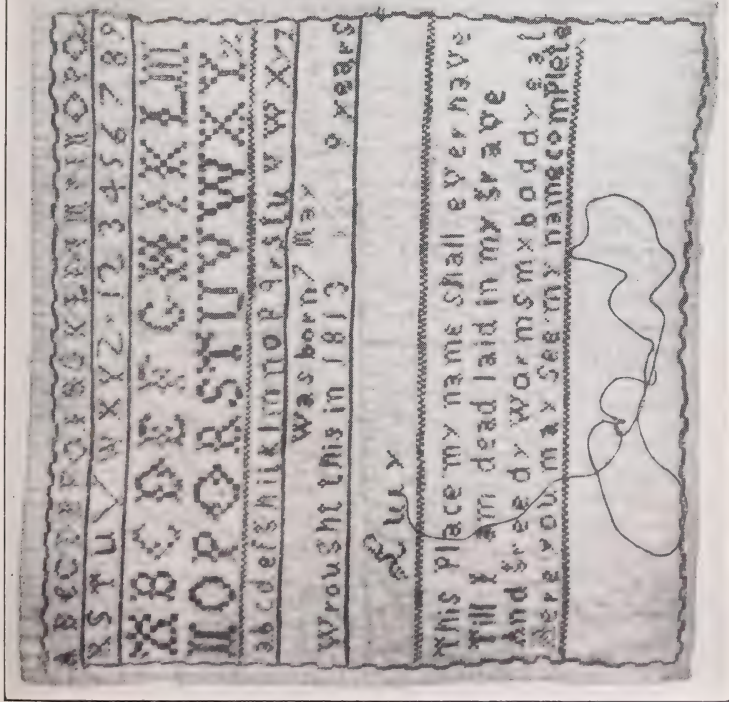 A B C D E F G H I J K L M N O P Q
R S T U V W X Y Z. 1 2 3 4 5 6 7 8 9
A B C D E F G H I K L M
N O P Q R S T U V W X Y Z
a b c d e f g h i j k l m n o p q r s t u v w x y z
Was born 7 May
Wrought this in 1813 9 years
Lux
This Place my name shall ever have
Till I am dead laid in my grave
And greedy Worms my boddy eat
Here you may See my name complete